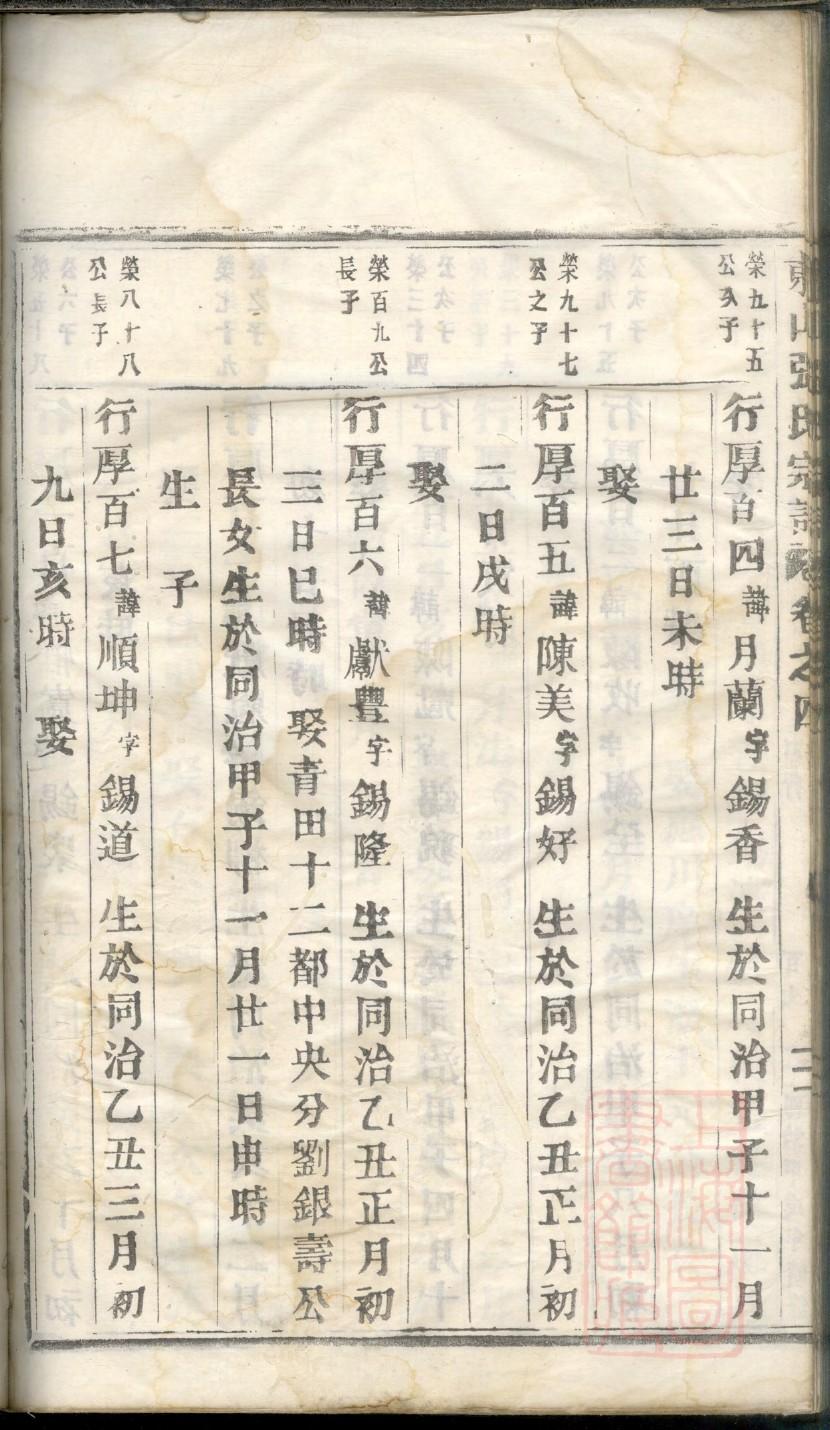 張氏宗譜 卷之四
榮九十五
公次子
行厚百四 諱月蘭 字錫香 生於同治甲子十一月
廿三日未時
娶
榮九十七
公之子
行厚百五 諱陳美 字錫好 生於同治乙丑正月初
二日戌時
娶
榮百九公
長子
行厚百六 諱獻豐 字錫隆 生於同治乙丑正月初
三日巳時 娶青田十二都中央分劉銀壽公
長女生於同治甲子十一月廿一日申時
生 子
榮八十八
公長子
行厚百七 諱順坤 字錫道 生於同治乙丑三月初
九日亥時 娶
上海圖書館藏